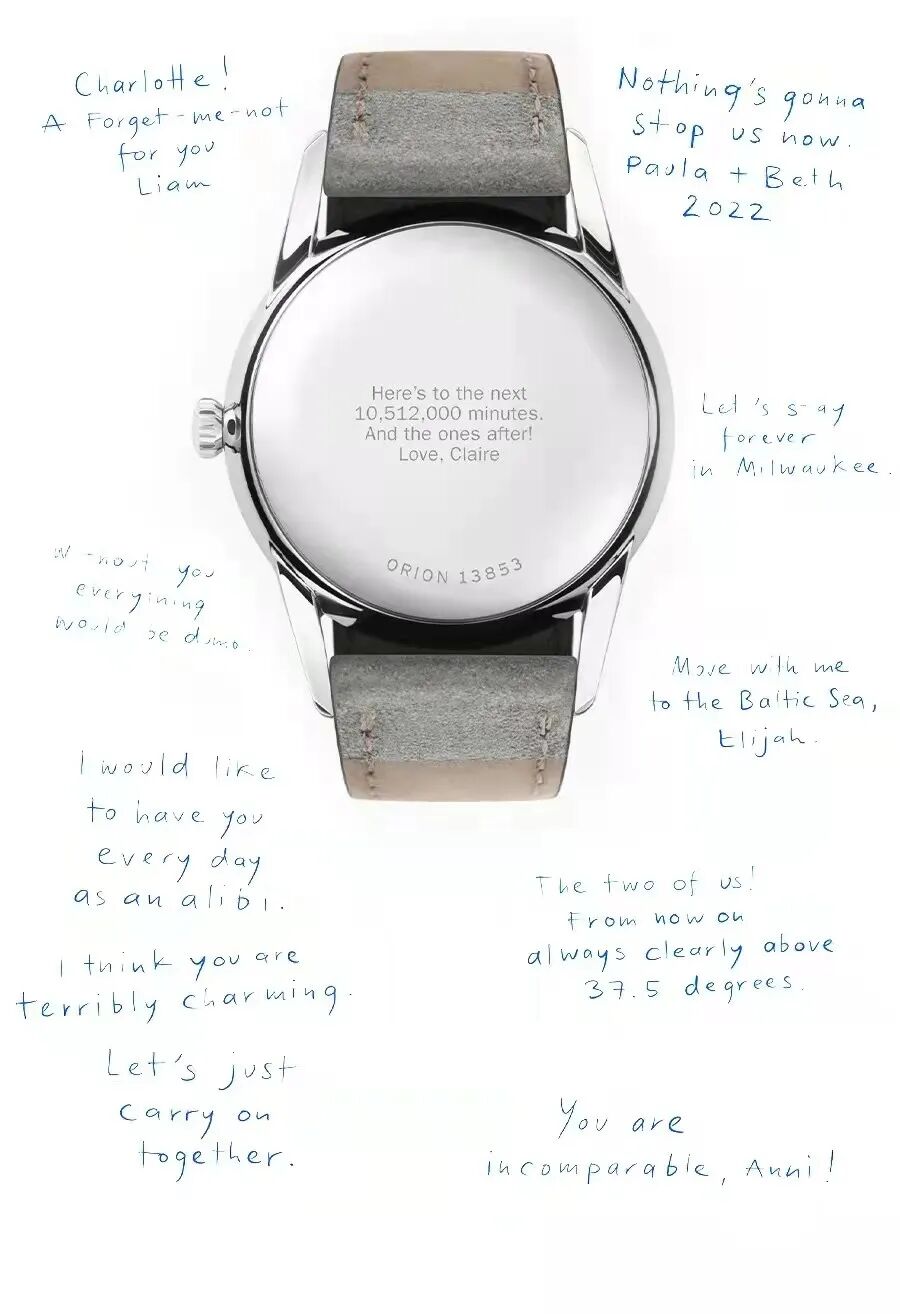 Charlotte!
A Forget-me-not
for you
Liam
Nothing's gonna
stop us now.
Paula + Beth
2022
Here's to the next
10,512,000 minutes.
And the ones after!
Love, Claire
ORION 13853
Let's stay
forever
in Milwaukee.
Without you
everything
would be dumb.
Move with me
to the Baltic Sea,
Elijah.
I would like
to have you
every day
as an alibi.
The two of us!
From now on
always clearly above
37.5 degrees.
I think you are
terribly charming.
Let's just
carry on
together.
You are
incomparable, Anni!